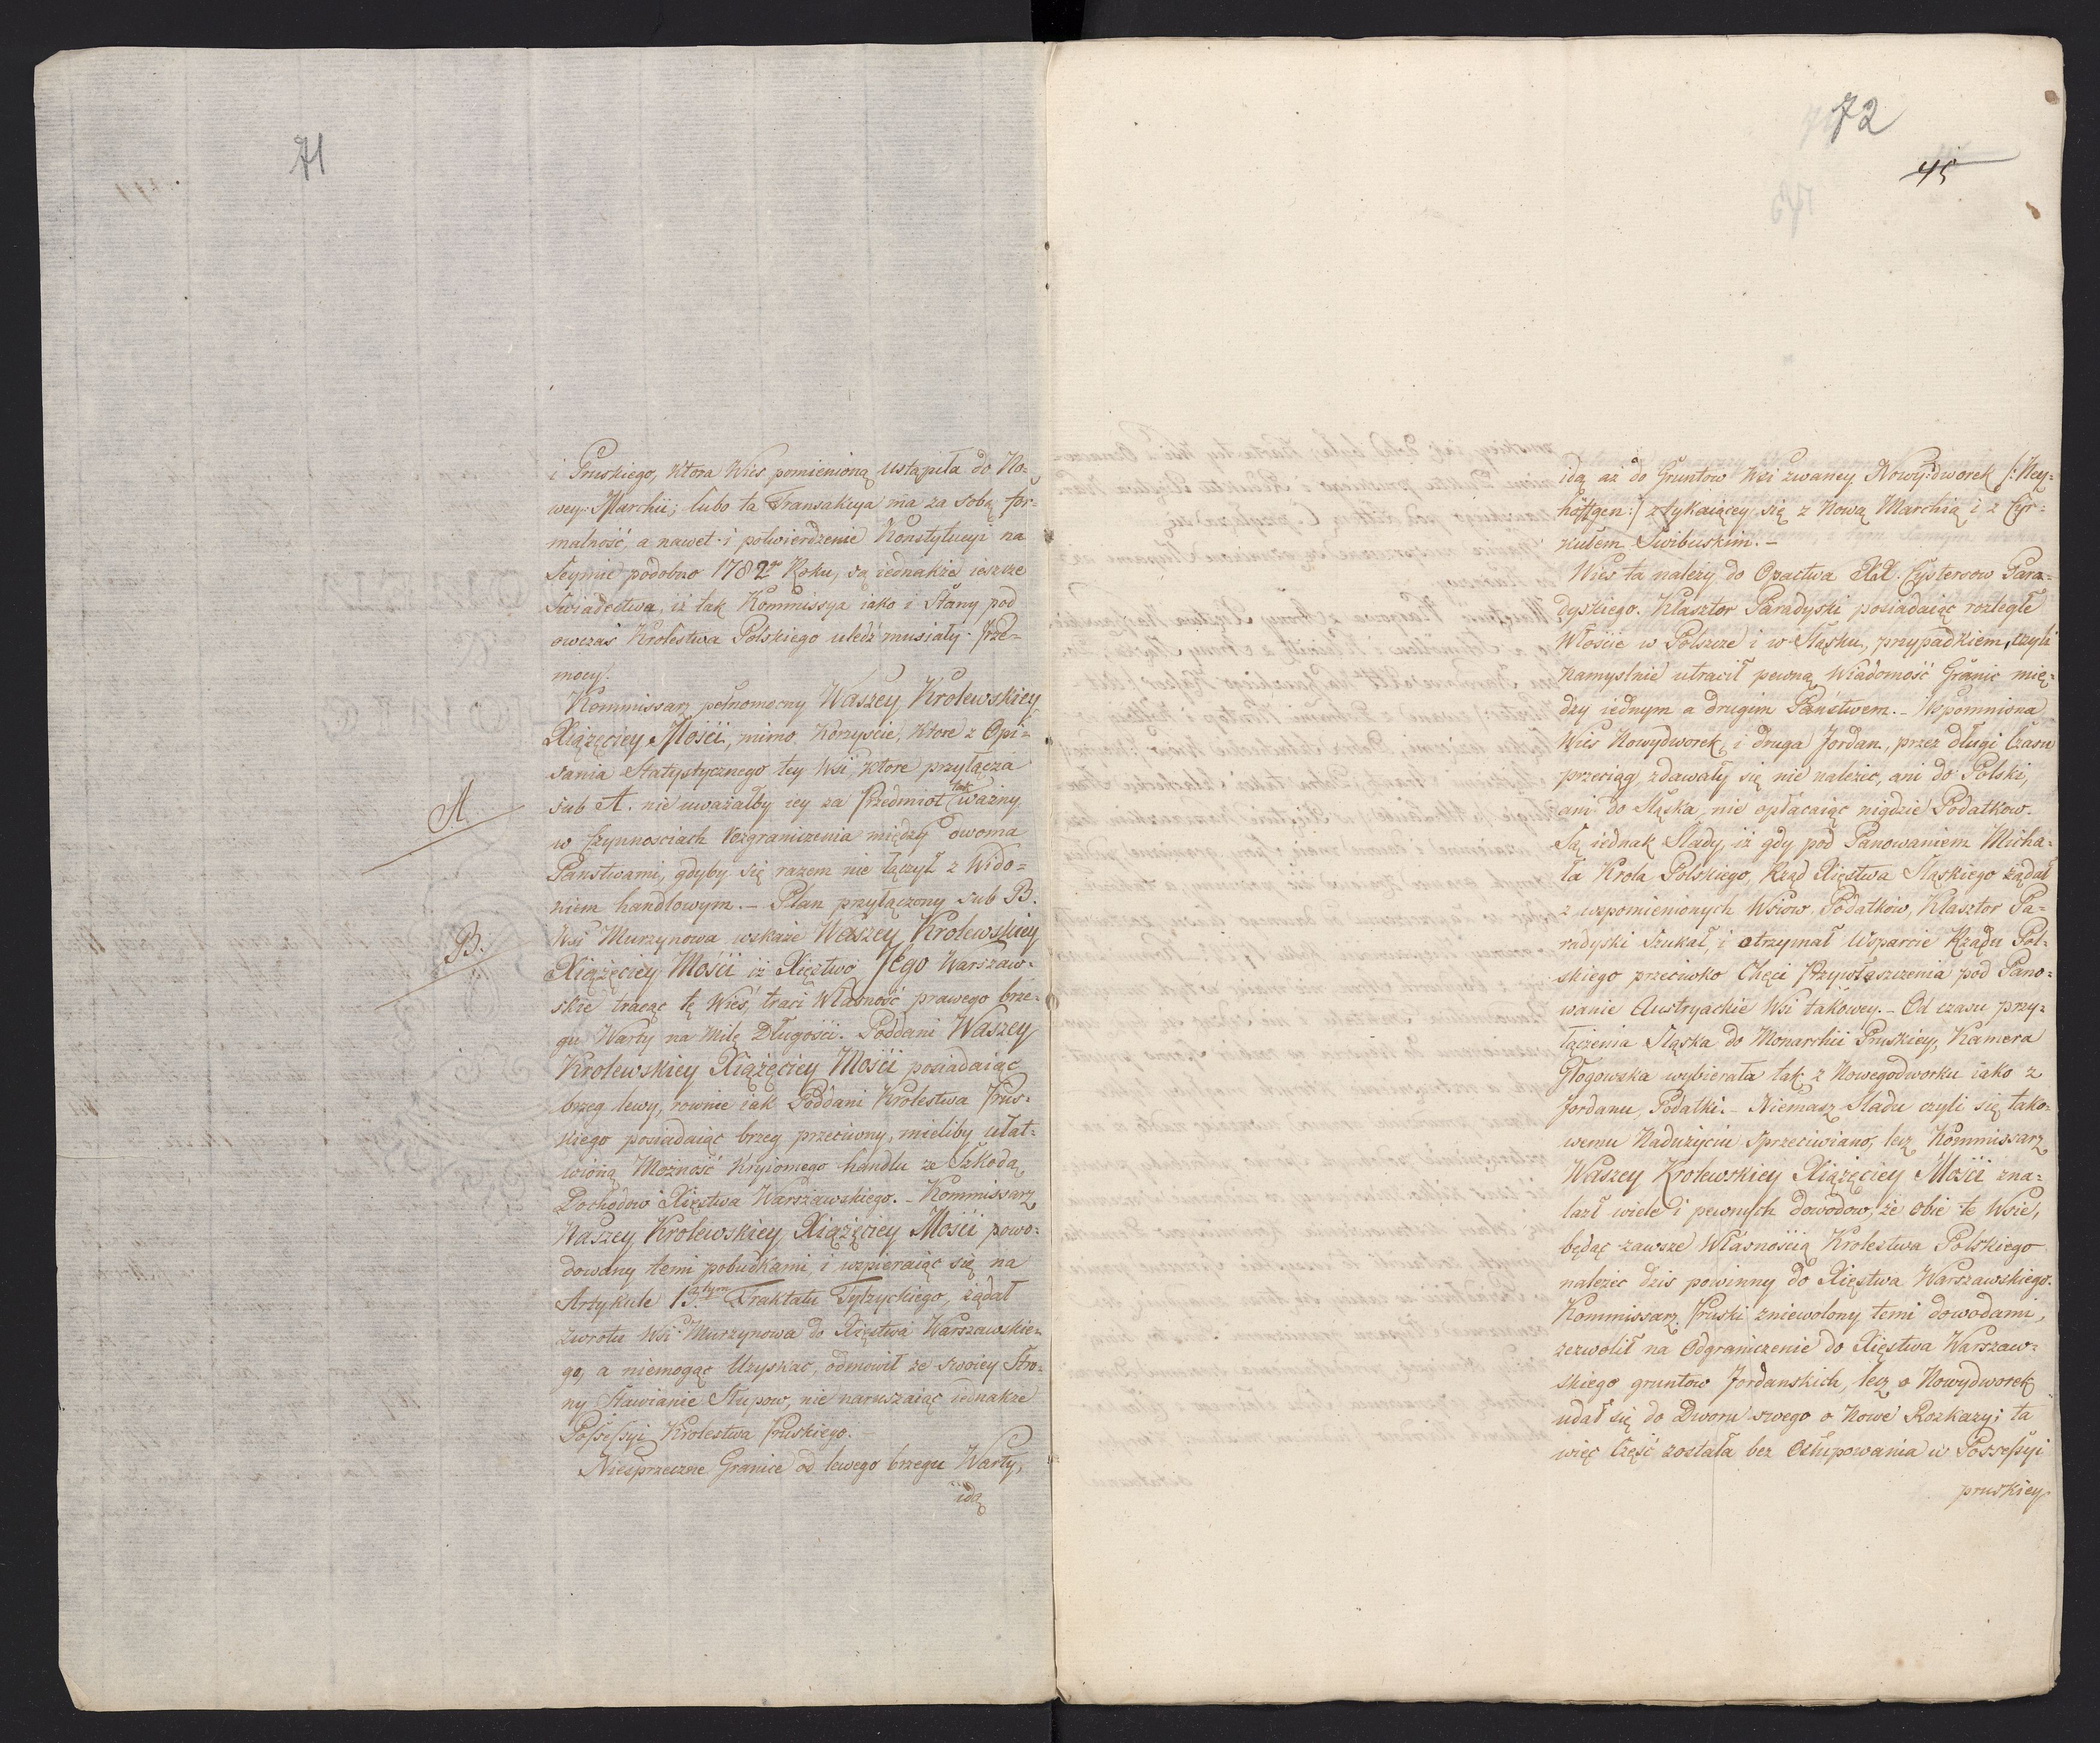 71
i Pruskiego, ktora Wieś pomienioną ustąpiła do No=
wey Marchii; lubo ta Transakcya ma za sobą for=
malność, a nawet i potwierdzenie Konstytucyi na
Seymie podobno 1782º Roku, są iednakże ieszcze
Swiadectwa, iż tak Kommissya iako i Stany pod
owczas Krolestwa Polskiego uledź musiały prze=
mocy.
Kommissarz pełnomocny Waszey Krolewskiey
Xiążęciey Mości, mimo Korzyście, ktore z Opi=
sania Statystycznego tey Wsi, ktore przyłącza
A.
sub A. nie uważałby iey za Przedmiot tak ważny
w Czynnosciach rozgraniczenia między dwoma
Panstwami, gdyby się razem nie łączył z Wido=
kiem handlowym. – Plan przyłączony sub B.
B.
Wsi Murzynowa wskaże Waszey Krolewskiey
Xiążęciey Mości iż Xięstwo Jego Warszaw=
skie tracąc tę Wieś, traci Własność prawego brze=
gu Warty na Milę Długości. Poddani Waszey
Krolewskiey Xiążęciey Mości posiadaiąc
brzeg lewy, rownie iak Poddani Krolestwa Prus=
kiego posiadaiąc brzeg przeciwny, mieliby ułat=
wioną Możność Kryiomego handlu ze Szkodą
Dochodow Xięstwa Warszawskiego. – Kommissarz
Waszey Krolewskiey Xiążęciey Mości powo=
dowany temi pobudkami, i wspieraiąc się na
Artykule 13. Traktatu Tylżyckiego, żądał
zwrotu Wsi Murzynowa do Xięstwa Warszawskie=
go, a niemogąc Uzyskac, odmowił ze swoiey Stro=
ny Stawianie Słupow, nie naruszaiąc iednakże
Possessyi Krolestwa Pruskiego.
Niesprzeczne Granice od lewego brzegu Warty,
idą
72
45
idą aż do Gruntow Wsi zwaney Nowy=dworek /: Ney=
höffgen :/ stykaiącey się z Nową Marchią i z Cyr=
kułem Swibuskim. –
Wieś ta należy do Opactwa XX. Cystersow Para=
dyskiego. Klasztor Paradyski posiadaiąc rozległe
Włoście w Polszcze i w Śląsku, przypadkiem, czyli
namyslnie utracił pewną Wiadomość Granic mię=
dzy iednym a drugim Państwem. – Wspomniona
Wieś Nowydworek, i druga Jordan, przez długi Czasu
przeciąg zdawały się nie należec, ani do Polski,
ani do Śląska, nie opłacaiąc nigdzie Podatkow.
Są iednak Slady, iż gdy pod Panowaniem Micha=
ła Krola Polskiego, Rząd Xięstwa Sląskiego żądał
z wspomienionych Wsiow, Podatkow, Klasztor Pa=
radyski Szukał, i otrzymał Wsparcie Rządu Pol=
skiego przeciwko Chęci Przywłaszczenia pod Pano=
wanie Austryackie Wsi takowey. – Od czasu przy=
łączenia Sląska do Monarchii Pruskiey, Kamera
Głogowska wybierała tak z Nowegodworku iako z
Jordanu, Podatki. – Niemasz Sladu czyli się tako=
wemu Nadużyciu sprzeciwiano, lecz Kommissarz
Waszey Krolewskiey Xiążęciey Mości zna=
lazł wiele i pewnych dowodow, że obie te Wsie,
będąc zawsze Własnością Krolestwa Polskiego
należec dzis powinny do Xięstwa Warszawskiego.
Kommissarz Pruski zniewolony temi dowodami,
zezwolił na Odgraniczenie do Xięstwa Warszaw=
skiego gruntow Jordanskich, lecz o Nowydworek
udał się do Dworu swego o Nowe Rozkazy; ta
więc Część została bez Osłupowania w Possessyi
pruskiey